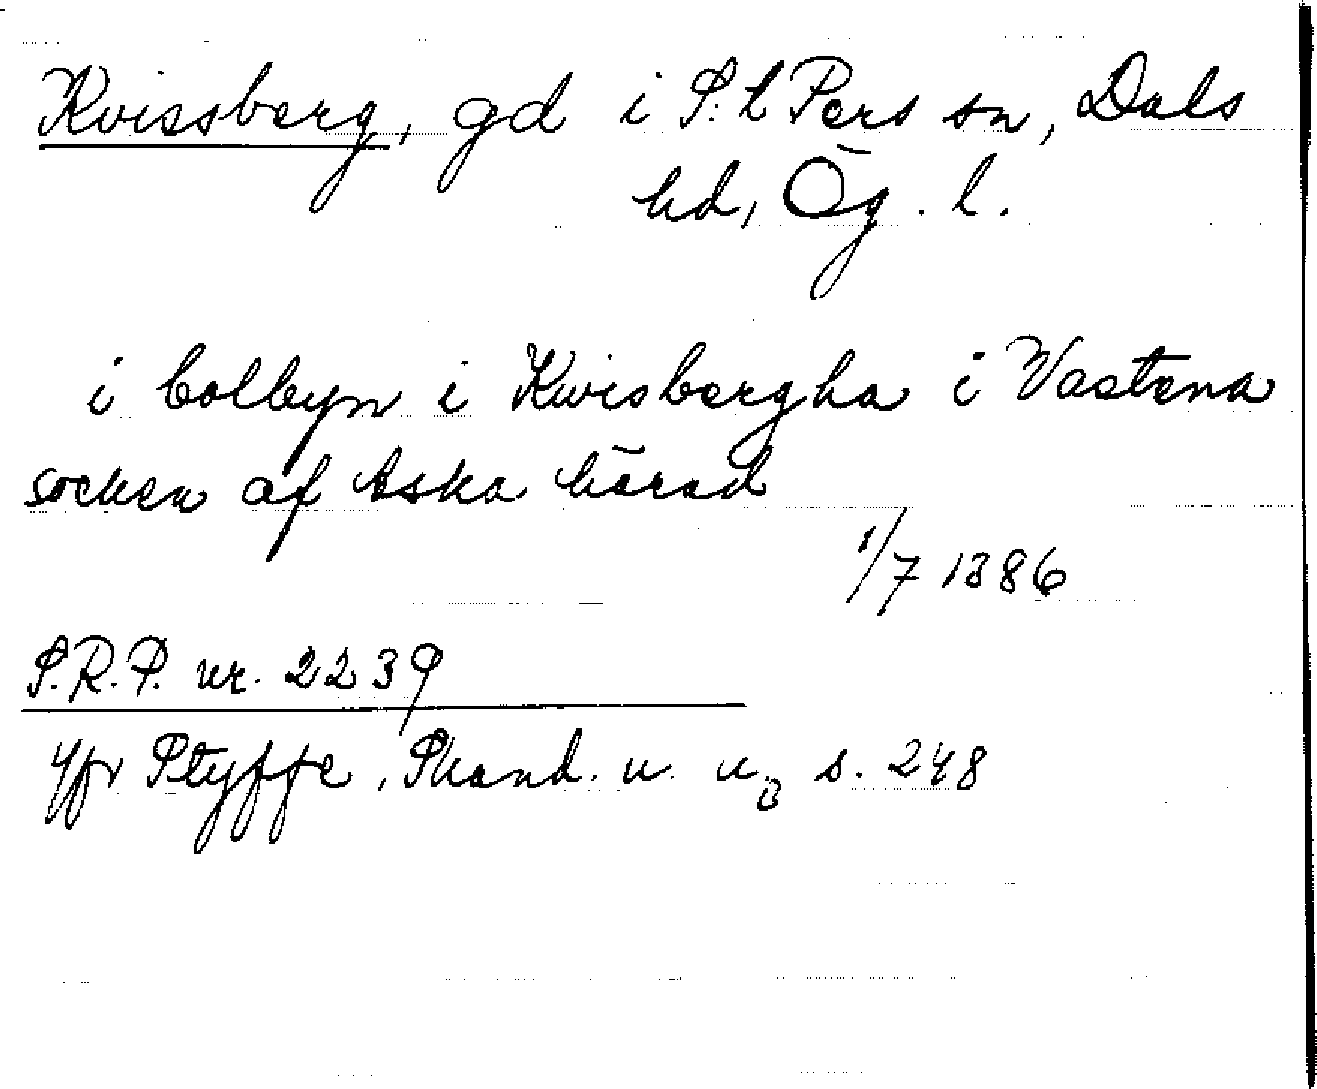 Kvissberg, gd i S:t Pers sn, Dals
hd, Ög. l.
i bolbyn i Kwisbergha i Vastena
socken af Aska härad
1/7 1386
S.R.P. nr. 2239
Jfr Styffe, Skand. u. u3 s. 248